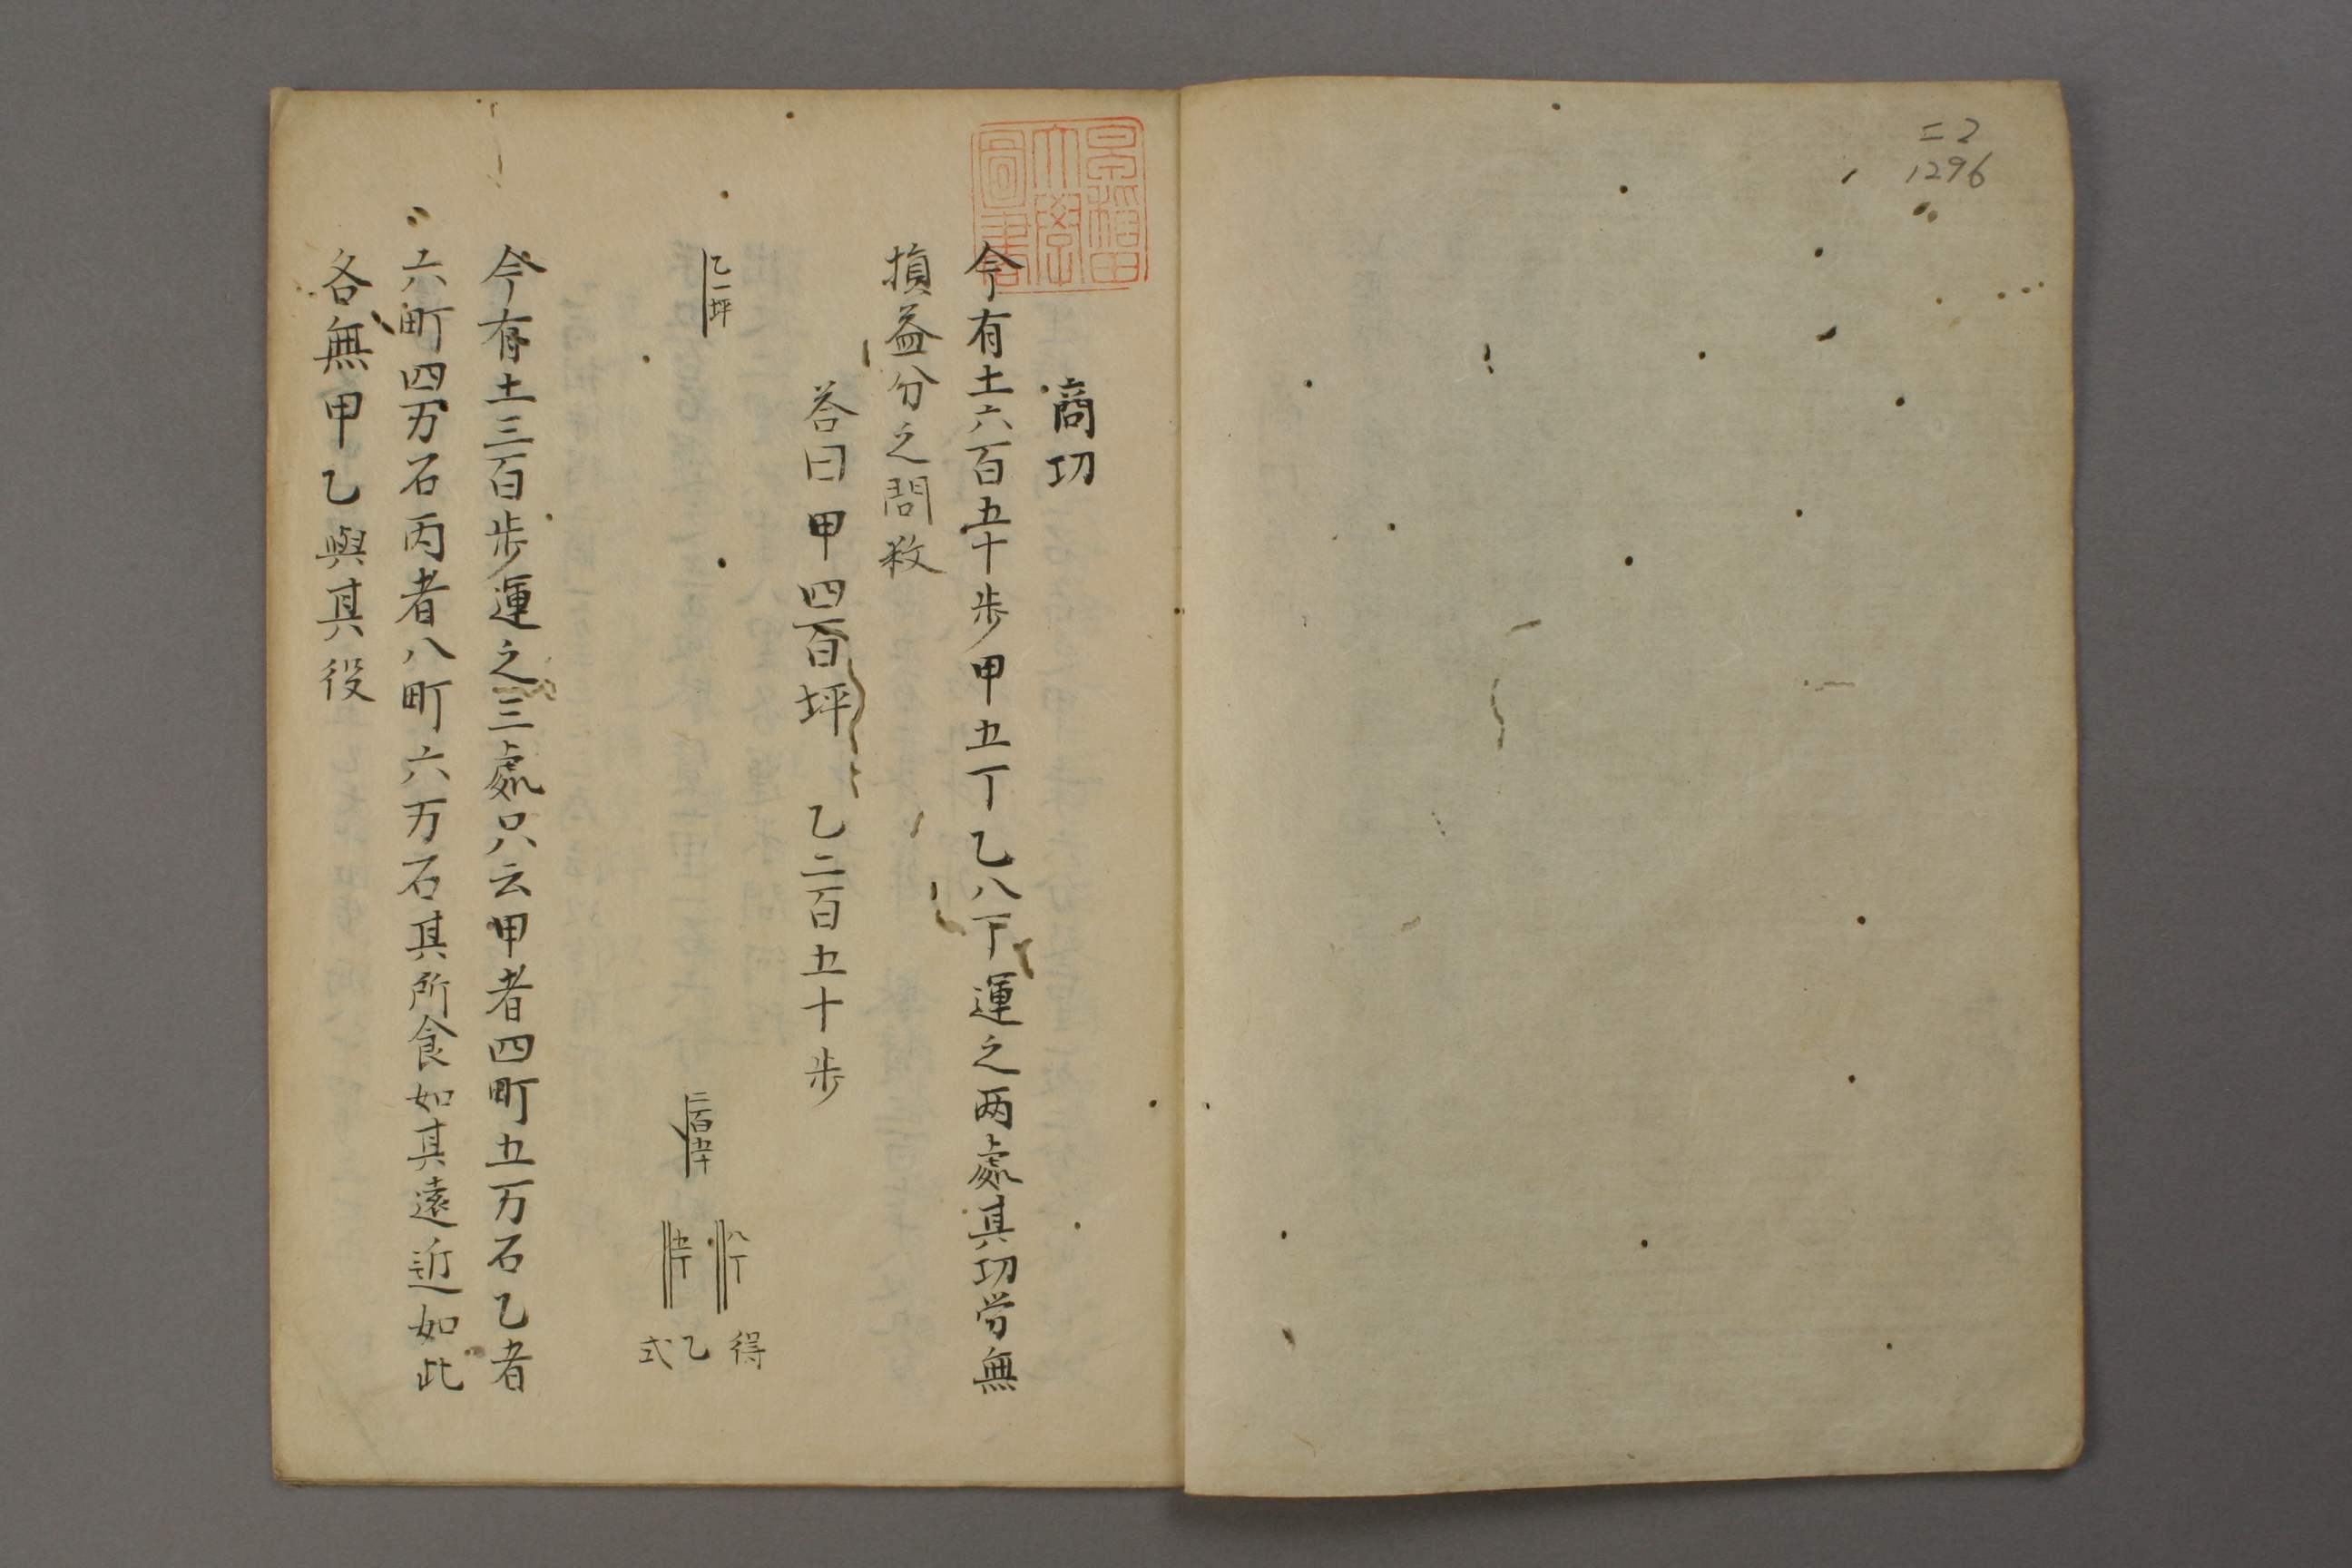 ニ2
1296
早稲田大學圖書
商功
今有土六百五十歩甲五丁乙八丁運之两處其功労無
損益分之問救
荅曰甲四百坪 乙二百五十歩
乙一坪
六百五十
八丁
五丁
得乙式
今有土三百歩運之三處只云甲者四町五万石乙者
六町四万石丙者八町六万石其所食如其遠近如此
各無甲乙與其役